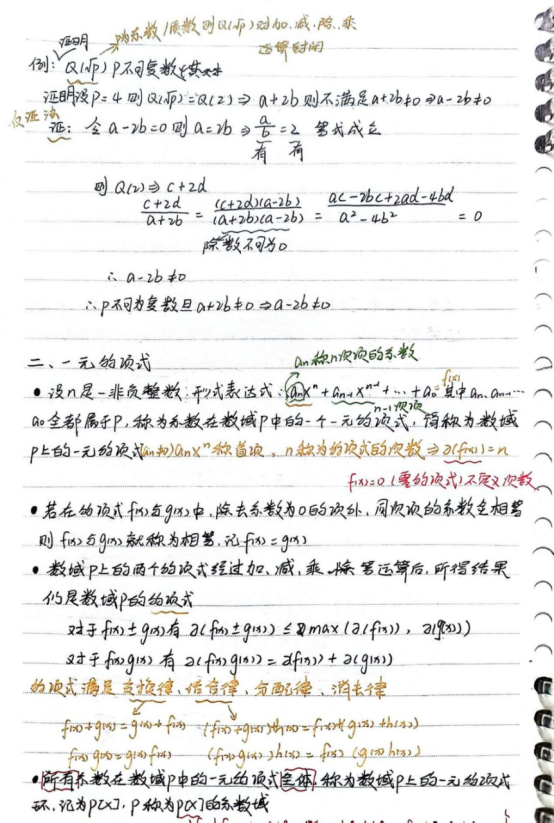 证明
为素数/质数则Q(√p)对加.减.除.乘
运算封闭
例: Q(√p) P不可复数
证明设P=4 则 Q(√p)=Q(2) ⇒ a+2b 则不满足a+2b≠0 ⇒ a-2b≠0
反证法
证: 令 a-2b=0 则 a=2b ⇒ a/b = 2 等式成立
有 有
则 Q(2) ⇒ c+2d
(c+2d)/(a+2b) = (c+2d)(a-2b)/(a+2b)(a-2b) = (ac-2bc+2ad-4bd)/(a²-4b²) = 0
除数不可为0
∴ a-2b≠0
∴ P不可为复数且 a+2b≠0 ⇒ a-2b≠0
an 称n次项的系数
二、一元多项式
• 设n是一非负整数.形式表达式: anxⁿ+an-1xⁿ⁻¹+…+a0=f(x) 其中an.an-1…
n-1次项
a0全部属于P,称为系数在数域P中的一个一元多项式,简称为数域
P上的一元多项式(an≠0)anxⁿ称首项,n称为多项式的次数⇒∂(f(x))=n
f(x)=0 (零多项式)不定义次数
• 若在多项式f(x)与g(x)中,除去系数为0的项外,同次项的系数全相等
则 f(x)与g(x)就称为相等,记f(x)=g(x)
• 数域P上的两个多项式经过加、减、乘、除等运算后,所得结果
仍是数域P的多项式
对于f(x)±g(x)有 ∂(f(x)±g(x)) ≤ max(∂(f(x)), ∂(g(x)))
对于f(x)g(x) 有 ∂(f(x)g(x)) = ∂(f(x)) + ∂(g(x))
多项式满足交换律、结合律、分配律、消去律
f(x)+g(x)=g(x)+f(x) (f(x)+g(x))+h(x)=f(x)+(g(x)+h(x))
f(x)g(x)=g(x)f(x) (f(x)g(x))h(x)=f(x)(g(x)h(x))
• 所有系数在数域P中的一元多项式全体,称为数域P上的一元多项式
环,记为P[x],P称为P[x]的系数域